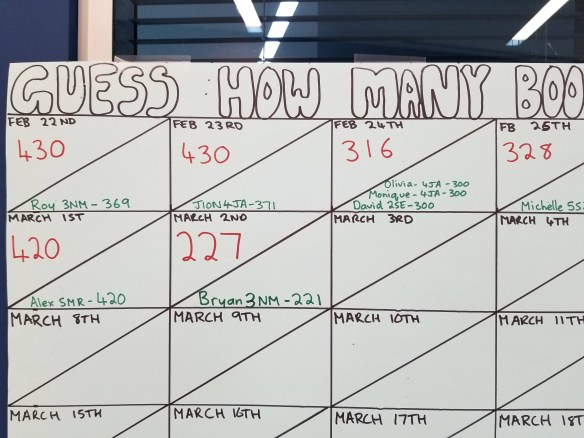 GUESS HOW MANY BOO
FEB 22ND
430
Roy 3NM - 369
FEB 23RD
430
JION 4JA - 371
FEB 24TH
316
Olivia - 4JA - 300
Monique - 4JA - 300
David 2SE - 300
FB 25TH
328
Michelle
MARCH 1ST
420
Alex 5MR - 420
MARCH 2ND
227
Bryan 3NM - 221
MARCH 3RD
MARCH 4TH
MARCH 8TH
MARCH 9TH
MARCH 10TH
MARCH 11TH
MARCH 15TH
MARCH 16TH
MARCH 17TH
MARCH 18T